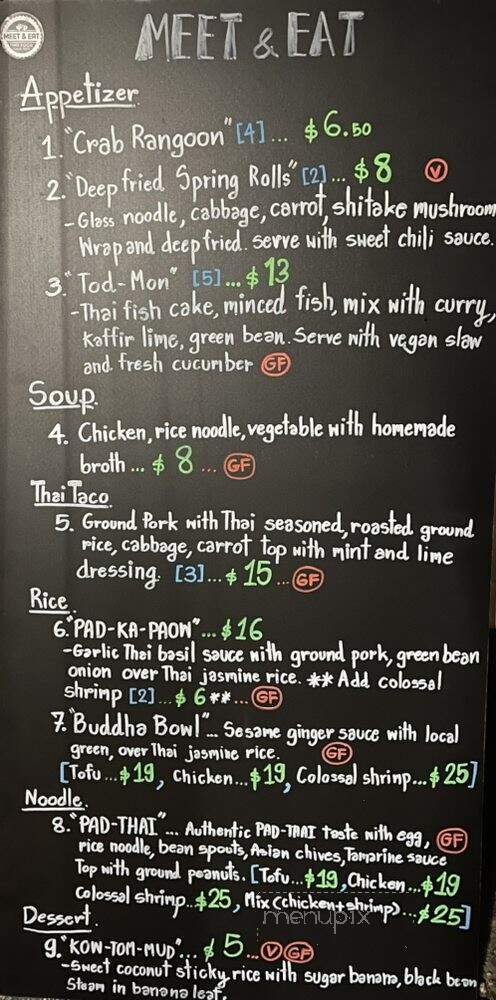 MEET & EAT
MEET & EAT
Appetizer
1. "Crab Rangoon" [4]... $6.50
2. "Deep fried Spring Rolls" [2]... $8 V
- Glass noodle, cabbage, carrot, shitake mushroom
Wrap and deep fried. serve with sweet chili sauce.
3. "Tod-Mon" [5]... $13
- Thai fish cake, minced fish, mix with curry,
Kaffir lime, green bean. Serve with vegan slaw
and fresh cucumber GF
Soup
4. Chicken, rice noodle, vegetable with homemade
broth... $8... GF
Thai Taco
5. Ground Pork with Thai seasoned, roasted ground
rice, cabbage, carrot top with mint and lime
dressing. [3]... $15... GF
Rice
6. "PAD-KA-PAOW"... $16
- Garlic Thai basil sauce with ground pork, green bean
onion over Thai jasmine rice. ** Add colossal
shrimp [2]... $6**... GF
7. "Buddha Bowl"... Sesame ginger sauce with local
green, over Thai jasmine rice. GF
[Tofu...$19, Chicken...$19, Colossal shrimp...$25]
Noodle
8. "PAD-THAI"... Authentic PAD-THAI taste with egg, GF
rice noodle, bean spouts, Asian chives, Tamarine sauce
Top with ground peanuts. [Tofu...$19, Chicken...$19
Colossal shrimp...$25, Mix (chicken+shrimp)...$25]
menupix
Dessert
9. "KOW-TOM-MUD"... $5... V GF
- Sweet coconut sticky rice with sugar banana, black bean
Steam in banana leaf.